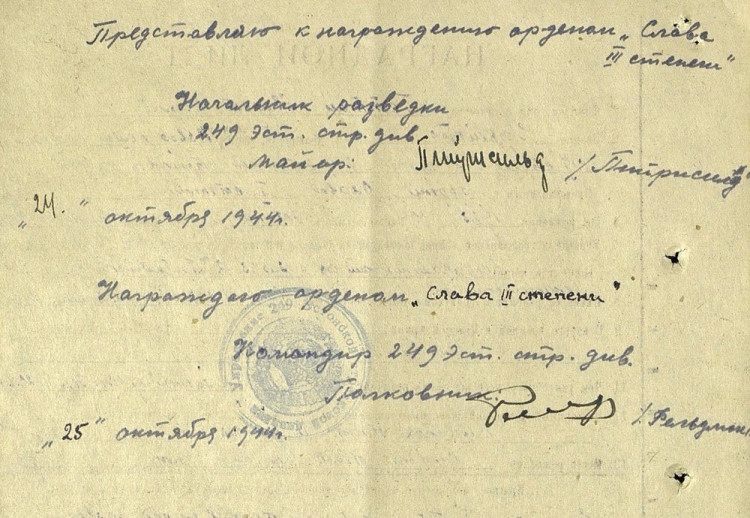 Представляю к награждению орденом „Слава
III степени"
Начальник разведки
249 эст. стр. див.
Майор:
"24." октября 1944г.
Награждаю орденом „Слава III степени"
Командир 249 эст. стр. див.
Полковник:
/Фельдман/
„25" октября 1944г.